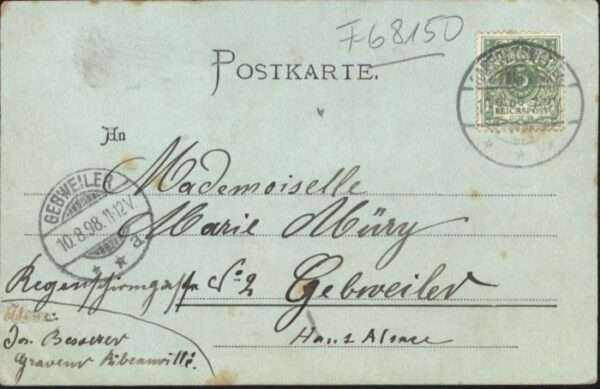 F68150
POSTKARTE.
An
5
REICHSPOST
GEBWEILER
10.8.98. 11-12V.
a
Mademoiselle
Marie Müry
Regenschirmgasse No. 2
Gebweiler
Haut Alsace
Jos. Besserer
Graveur Ribeauvillé